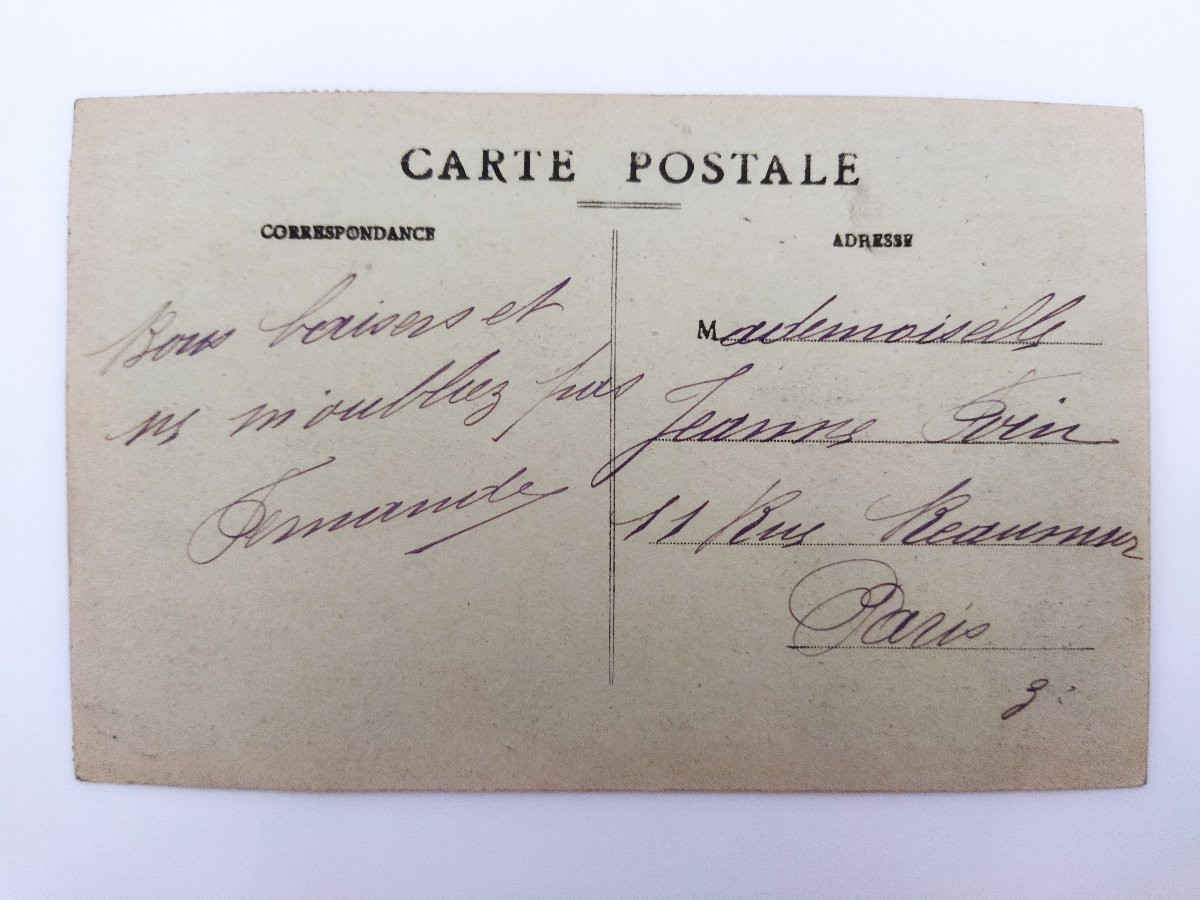 CARTE POSTALE
CORRESPONDANCE
ADRESSE
Bons baisers et
ne m'oubliez pas
Fernande
Mademoiselle
Jeanne
11 Rue Reaumur
Paris
3